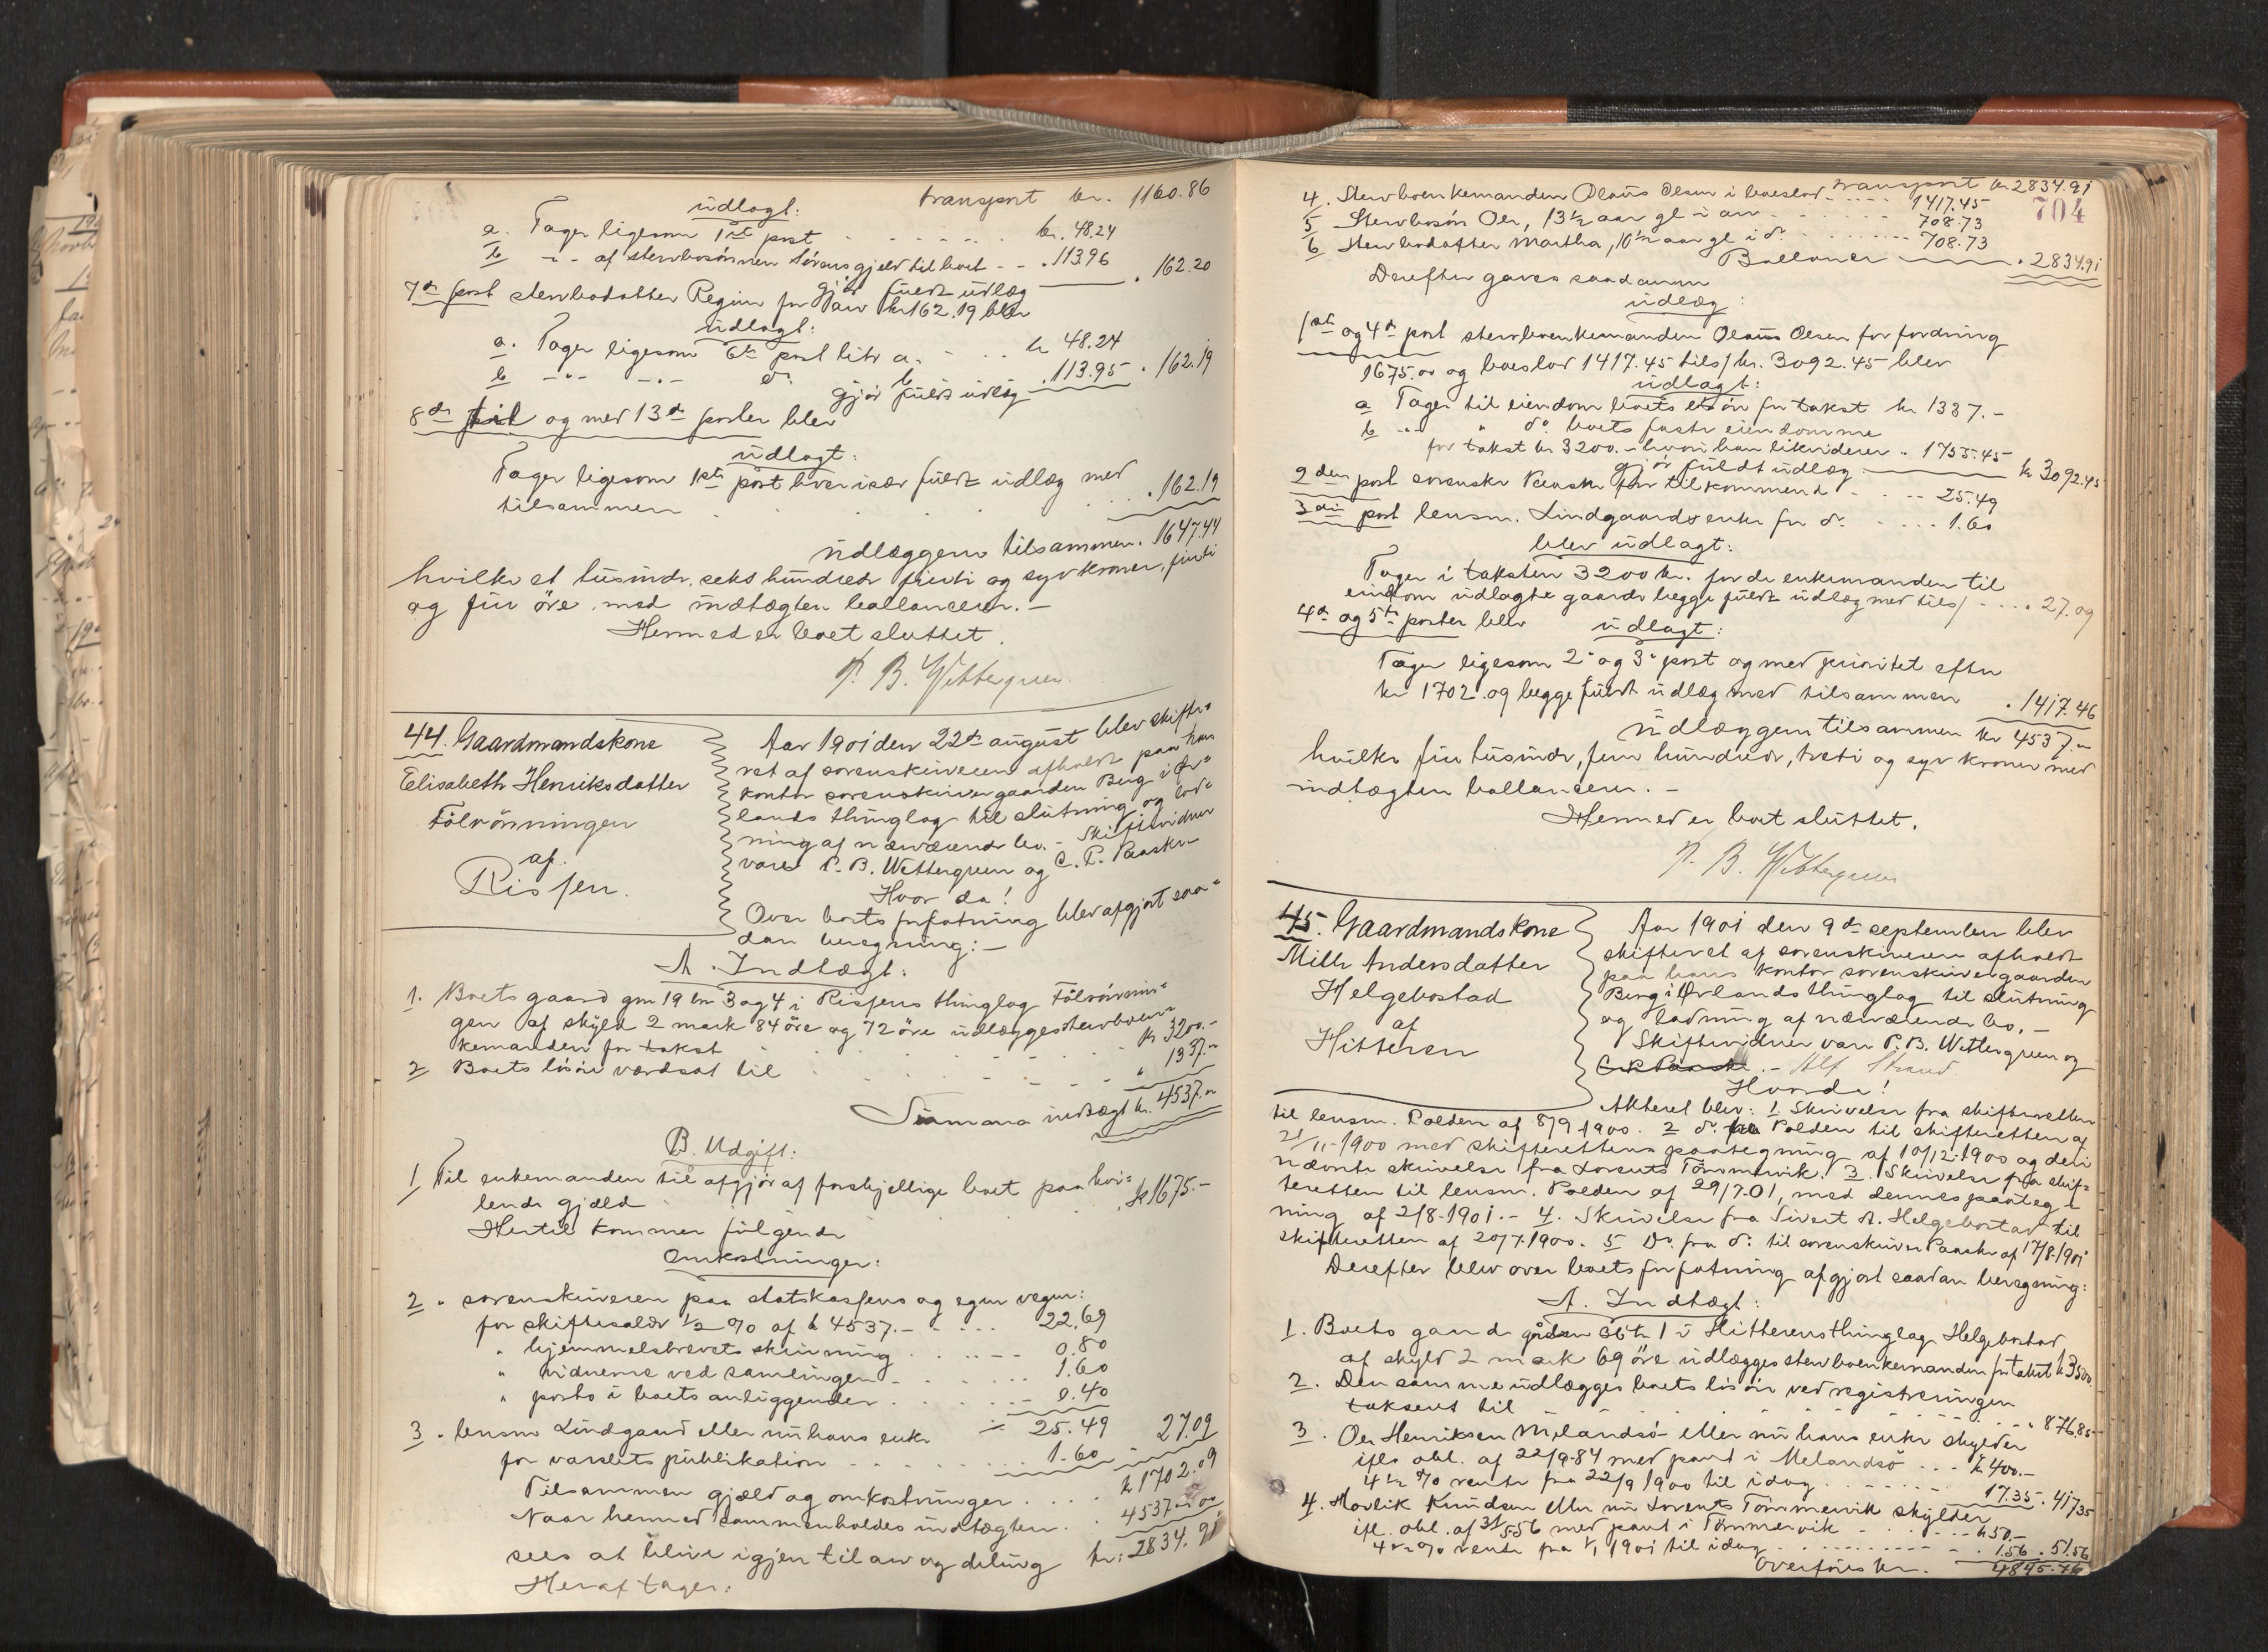 transport kr. 1160.86
udlagt:
a. Tager ligesom 1ste post kr. 48.24
b -"- af stervbosønnen Sørens gjeld til boet - - . 113.96
gjør fuldt udlæg . 162.20
7de post stervbodatter Regine for arv kr 162.19 blev
udlagt:
a. Tager ligesom 6te post litr a. kr 48.24
b -"- -"- do b . 113.95 . 162.19
gjør fuldt udlæg
8de til og med 13de poster blev
udlagt:
Tager ligesom 1ste post hver især fuldt udlæg med
tilsammen . 162.19
udlæggene tilsammen. 1647.44
hvilke et tusinde, seks hundrede firti og syv kroner, firti
og fire öre med indtægten ballancerer. -
Hermed er boet sluttet.
P. B. Wettergreen
44. Gaardmandskone
Elisabeth Henriksdatter
Fölvönningen
af
Rissen.
Aar 1901 den 22de august blev skifte=
ret af sorenskriveren afholdt paa hans
kontor sorenskrivergaarden Berg i Ør=
lands thinglag til slutning og lod=
ning af nærværende bo. - Skiftevidner
vare P. B. Wettergreen og C. P. Paaske
Hvor da!
Over boets forfatning blev afgjort saa=
dan beregning: -
A. Indtægt:
1. Boets gaard gno 19 bno 3 og 4 i Rissens thinglag Fölvönnin=
gen af skyld 2 mark 84 öre og 72 öre udlægges stervboen=
kemanden for takst kr 3200.-
2 Boets lösöre værdsat til " 1337.-
Summa indtægt kr. 4537.-
B. Udgift:
1 Til enkemanden til afgjør af forskjellige boet paahvi=
lende gjæld . kr 1675.-
Hertil kommer følgende
Omkostninger:
2 . sorenskriveren paa statskassens og egne vegne:
for skiftesalær 1/2 % af kr 4537.- 22.69
" hjemmelsbrevets skrivning 0.80
" vidnerne ved samlingen 1.60
" porto i boets anliggender 0.40
25.49
3 . lensm Lindgaard eller nu hans enke
for varslets publikation 1.60 27.09
Tilsammen gjæld og omkostninger kr 1702.09
Naar hermed sammenholdes indtægten 4537.00
sees at blive igjen til arv og deling kr: 2834.91
Heraf tager:
transport kr 2834.91
704
4. Stervboenkemanden Olaus Olsen i boeslod 1417.45
5 Stervbosøn Ole, 13 1/2 aar gl i arv 708.73
6 Stervbodatter Martha, 10 1/2 aar gl i do 708.73
Ballancer . 2834.91
Derefter gaves saadanne
udlæg:
1ste og 4de post stervboenkemanden Olaus Olsen for fordring
1675.00 og boeslod 1417.45 tils/ kr. 3092.45 blev
udlagt:
a Tager til eiendom boets lösöre for takst kr 1337.-
b -"- " do boets faste eiendomme
for takst kr 3200.- hvori han likviderer " 1755.45
gjør fuldt udlæg kr 3092.45
2den post sorenskr Paaske for tilkommende 25.49
3die post lensm. Lindgaards enke for do 1.60
blev udlagt:
Tager i taksten 3200 kr. for de enkemanden til
eiendom udlagte gaarde begge fuldt udlæg med tils/ . 27.09
4de og 5te poster blev udlagt:
Tager ligesom 2. og 3. post og med prioritet efter
kr 1702.09 begge fuldt udlæg med tilsammen . 1417.46
udlæggene tilsammen kr 4537.-
hvilke fire tusinde, fem hundrede, treti og syv kroner med
indtægten ballancerer. -
Hermed er boet sluttet.
P. B. Wettergreen
45. Gaardmandskone
Milli Andersdatter
Helgebostad
af
Hitteren
Aar 1901 den 9de september blev
skifteret af sorenskriveren afholdt
paa hans kontor sorenskrivergaarden
Berg i Ørlands thinglag til slutning
og lodning af nærværende bo. -
Skiftevidner vare P. B. Wettergreen og
C. P. Paaske. - Alf Strand.
Hvor da!
Akteret blev: 1 Skrivelse fra skifteretten
til lensm. Polden af 8/9 1900. 2 do fra Polden til skifteretten af
21/11-1900 med skifterettens paategning af 10/12-1900 og deri
nævnte skrivelse fra Lorents Tömmervik. 3. Skrivelse fra skif=
teretten til lensm. Polden af 29/7-01, med dennes paateg=
ning af 2/8-1901. - 4. Skrivelse fra Sivert A. Helgebostad til
skifteretten af 20/7.1900. 5 Do. fra do. til sorenskriver Paaske af 17/8-1901
Derefter blev over boets forfatning afgjort saadan beregning:
A. Indtægt:
1. Boets gaard gården 36 bno 1 i Hitterens thinglag Helgebostad
af skyld 2 mark 69 öre udlægges stervboenkemanden for takst kr 3500
2. Den samme udlægges boets lösöre ved registreringen
takseret til " 876.85
3. Ole Henriksen Melandsö eller nu hans enke skylder
ifle obl. af 22/9-84 med pant i Melandsö kr 400.-
4 1/2 % rente fra 22/9 1900 til idag 17.35. 417.35
4. Hovlik Knudsen eller nu Lorents Tömmervik skylder
ifl. obl. af 31/5 56 med pant i Tömmervik kr 50.-
4 1/2 % rente fra 1/1 1901 til idag . 1.56 . 51.56
Overføres kr. 4845.76